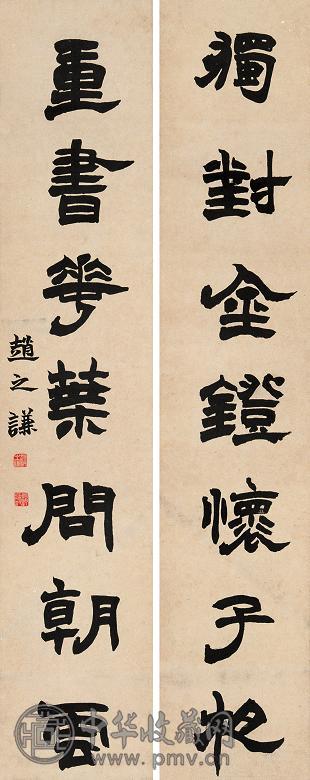 獨對金鐙懷子夜
重書華葉問朝雲
趙之謙
中华收藏网
www.pmv.cn